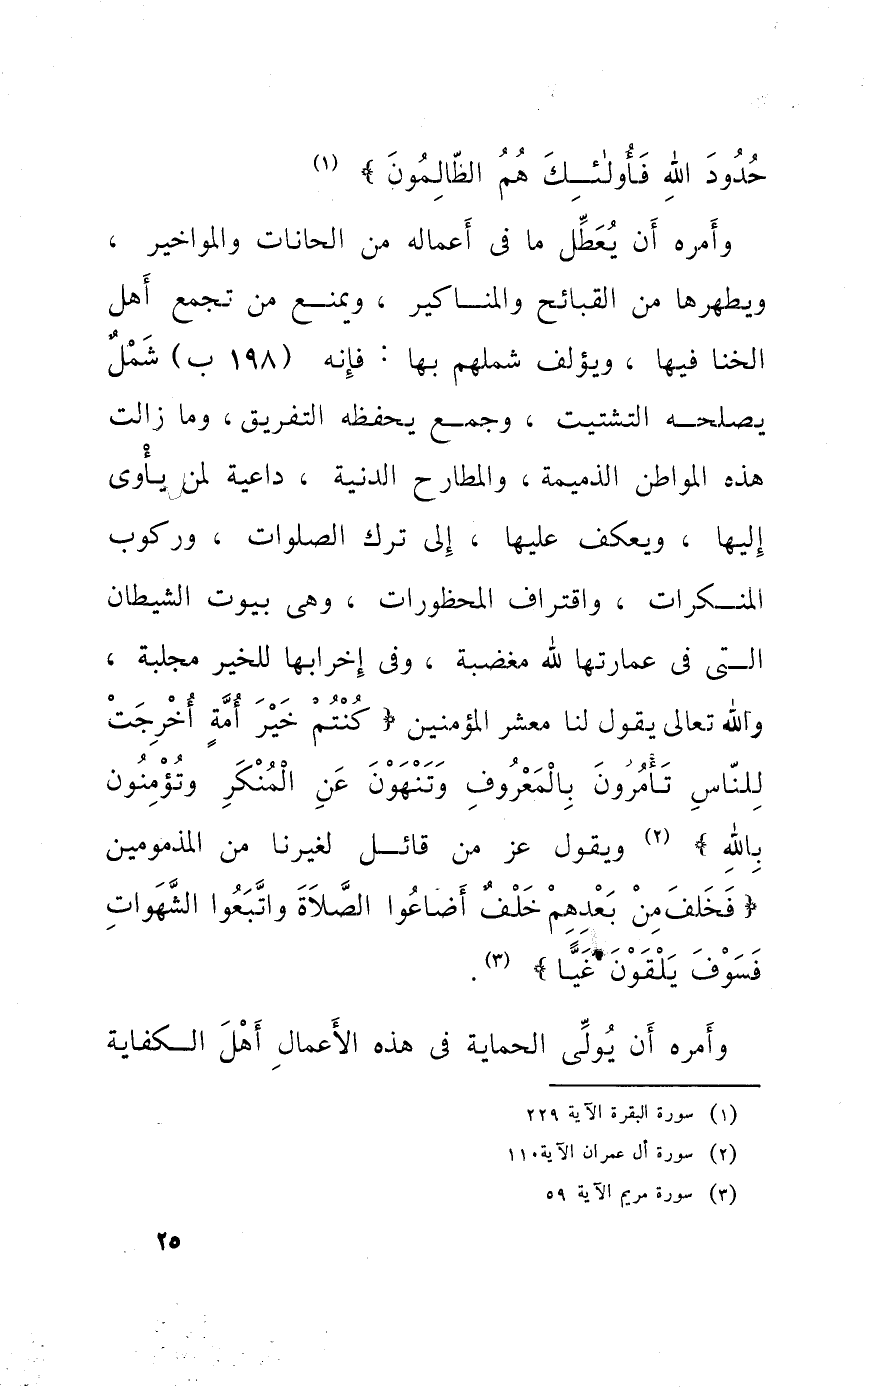 حُدُودَ اللهِ فَأُولٰئِكَ هُمُ الظَّالِمُونَ ﴾ (١)
وأَمره أَن يُعَطِّل ما فى أَعماله من الحانات والمواخير ،
ويطهرها من القبائح والمناكير ، ويمنع من تجمع أَهل
الخنا فيها ، ويؤلف شملهم بها : فإِنه (١٩٨ ب) شَمْلٌ
يصلحه التشتيت ، وجمع يحفظه التفريق ، وما زالت
هذه المواطن الذميمة ، والمطارح الدنية ، داعية لمن يأْوى
إِليها ، ويعكف عليها ، إِلى ترك الصلوات ، وركوب
المنكرات ، واقتراف المحظورات ، وهى بيوت الشيطان
التى فى عمارتها لله مغضبة ، وفى إِخرابها للخير مجلبة ،
والله تعالى يقول لنا معشر المؤمنين ﴿ كُنْتُمْ خَيْرَ أُمَّةٍ أُخْرِجَتْ
لِلنَّاسِ تَأْمُرُونَ بِالْمَعْرُوفِ وَتَنْهَوْنَ عَنِ الْمُنْكَرِ وَتُؤْمِنُون
بِاللهِ ﴾ (٢) ويقول عز من قائل لغيرنا من المذمومين
﴿ فَخَلَفَ مِنْ بَعْدِهِمْ خَلْفٌ أَضَاعُوا الصَّلاَةَ واتَّبَعُوا الشَّهَواتِ
فَسَوْفَ يَلْقَوْنَ غَيًّا ﴾ (٣) .
وأَمره أَن يُولِّى الحماية فى هذه الأَعمالِ أَهْلَ الكفاية
(١) سورة البقرة الآية ٢٢٩
(٢) سورة أل عمران الآية ١١٠
(٣) سورة مريم الآية ٥٩
٢٥